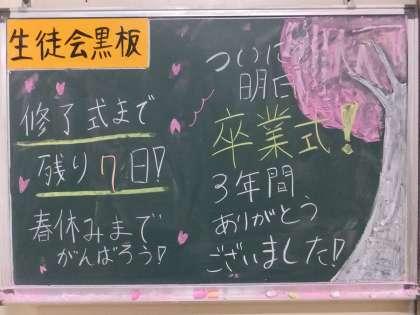 生徒会黒板
修了式まで
残り7日!
春休みまで
がんばろう!
ついに
明日
卒業式!
3年間
ありがとう
ございました!